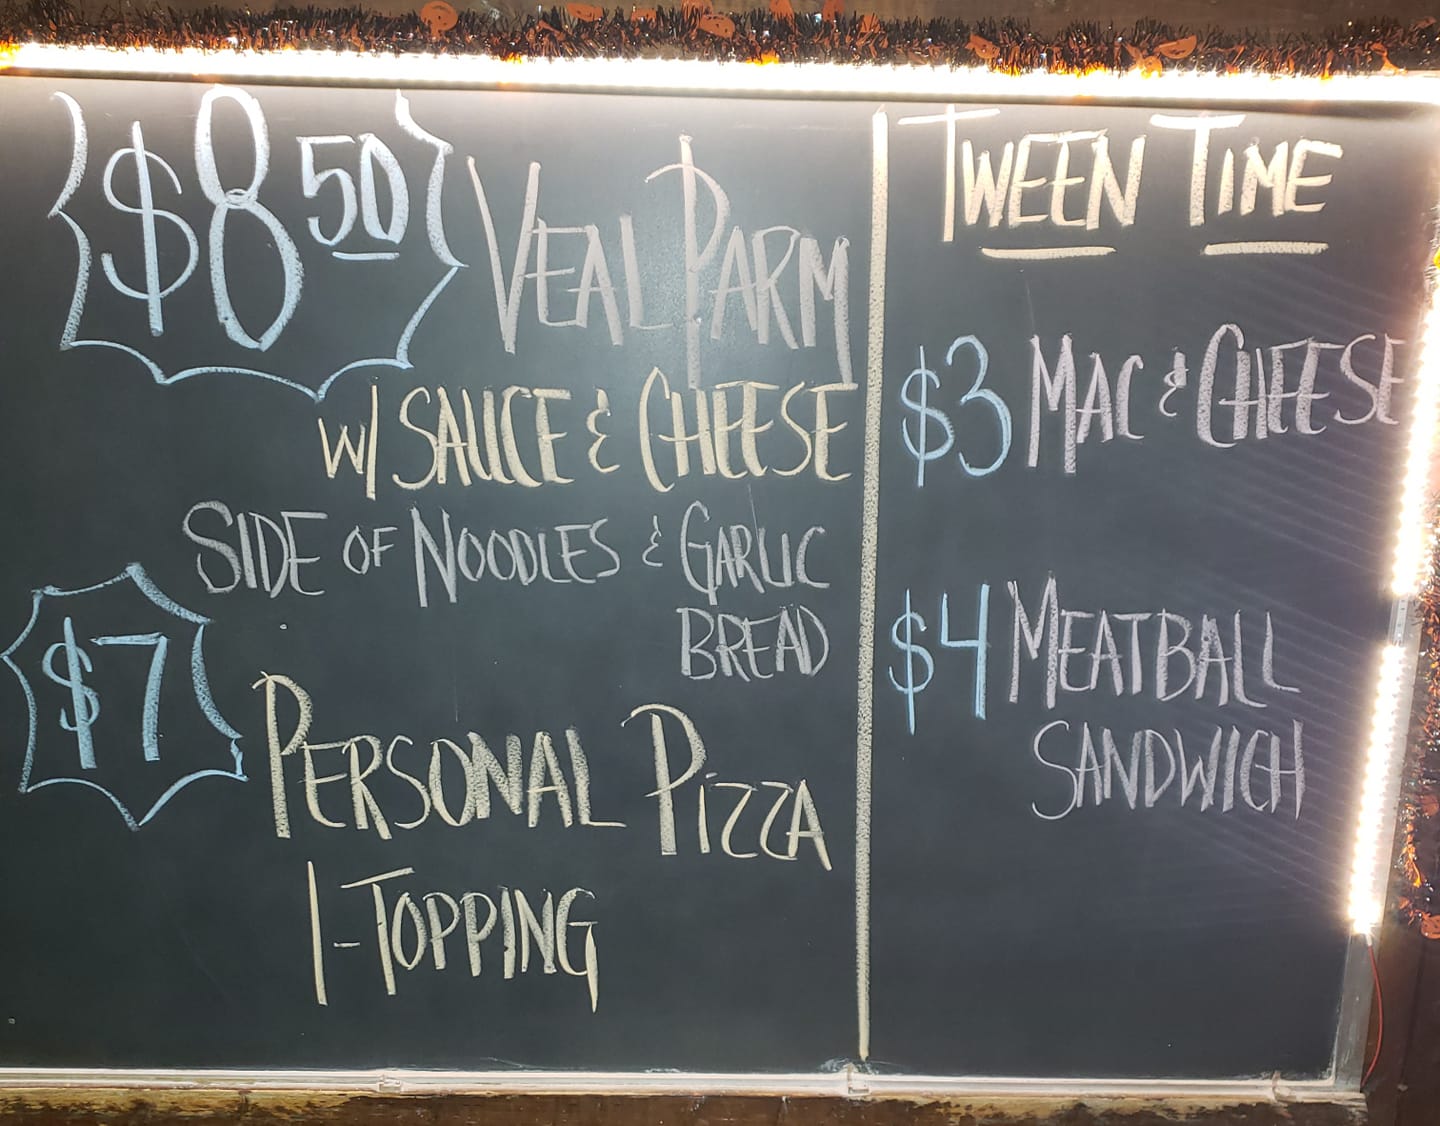 $8 50 VEAL PARM
W/ SAUCE & CHEESE
SIDE OF NOODLES & GARLIC
BREAD
$7 PERSONAL PIZZA
1-TOPPING
TWEEN TIME
$3 MAC & CHEESE
$4 MEATBALL
SANDWICH